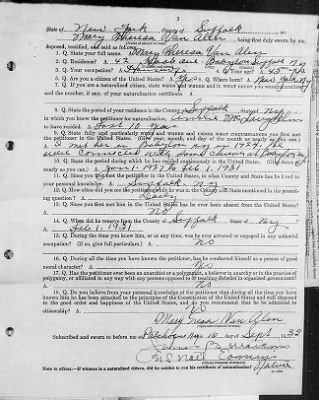 3
State of New York County of Suffolk
Mary Theresa Van Alen being first duly sworn by me,
deposed, testified, and said as follows:
1. Q. State your full name. A. Mary Theresa Van Alen
2. Q. Residence? A. 42 Ave Babylon Suffolk N.Y.
3. Q. Your occupation? A. 4. Q. Your age? A.
5. Q. Are you a citizen of the United States? A. Yes 6. Q. Where born? A. New York
7. Q. If you are a naturalized citizen, state when and where you were naturalized
and the number, if any, of your naturalization certificate. A.
8. Q. State the period of your residence in the County of Suffolk, State of N.Y.
A. Last 10 Years
9. Q. State fully and particularly where and when and under what circumstances you first met
the petitioner in the United States. (Give year, and day of the month as nearly as you can)
A. I met her in Babylon N.Y. in 1927. We
were connected with
10. Q. State the period during which he has resided continuously in the United States. (Give dates as
nearly as you can) A. 1927 to Feb 1, 1931
11. Q. Since you first met the petitioner in the United States, in what County and State has he lived to
your personal knowledge. A. Suffolk N.Y.
12. Q. How often did you see the petitioner while he was in the County and State mentioned in the preceding
question? A. Daily
13. Q. Since you first met him in the United States has he ever been absent from the United States?
A. No
14. Q. When did he remove from the County of Suffolk, State of N.Y.?
A. Feb 1, 1931
15. Q. During the time you knew him, or at any time, was he ever arrested or engaged in any unlawful
occupation? (If so, give full particulars.) A. No
16. Q. During all the time you have known the petitioner, has he conducted himself as a person of good
moral character? A. Yes
17. Q. Has the petitioner ever been an anarchist or a polygamist, a believer in anarchy or in the practice of
polygamy, or affiliated in any way with persons opposed to or disbelieving in organized government?
A. No
18. Q. Do you believe from your personal knowledge of the petitioner that during all the time you have
known him he has been attached to the principles of the Constitution of the United States and well disposed
to the good order and happiness of the United States, and do you recommend that he be admitted to
citizenship? A. Yes
Mary Van Alen
Subscribed and sworn to before me at Patchogue N.Y. 16 day of Sept, 1932
John B.
U.S. Nat.
Note to officer.—If witness is a naturalized citizen, did he exhibit to you his certificate of naturalization? Native